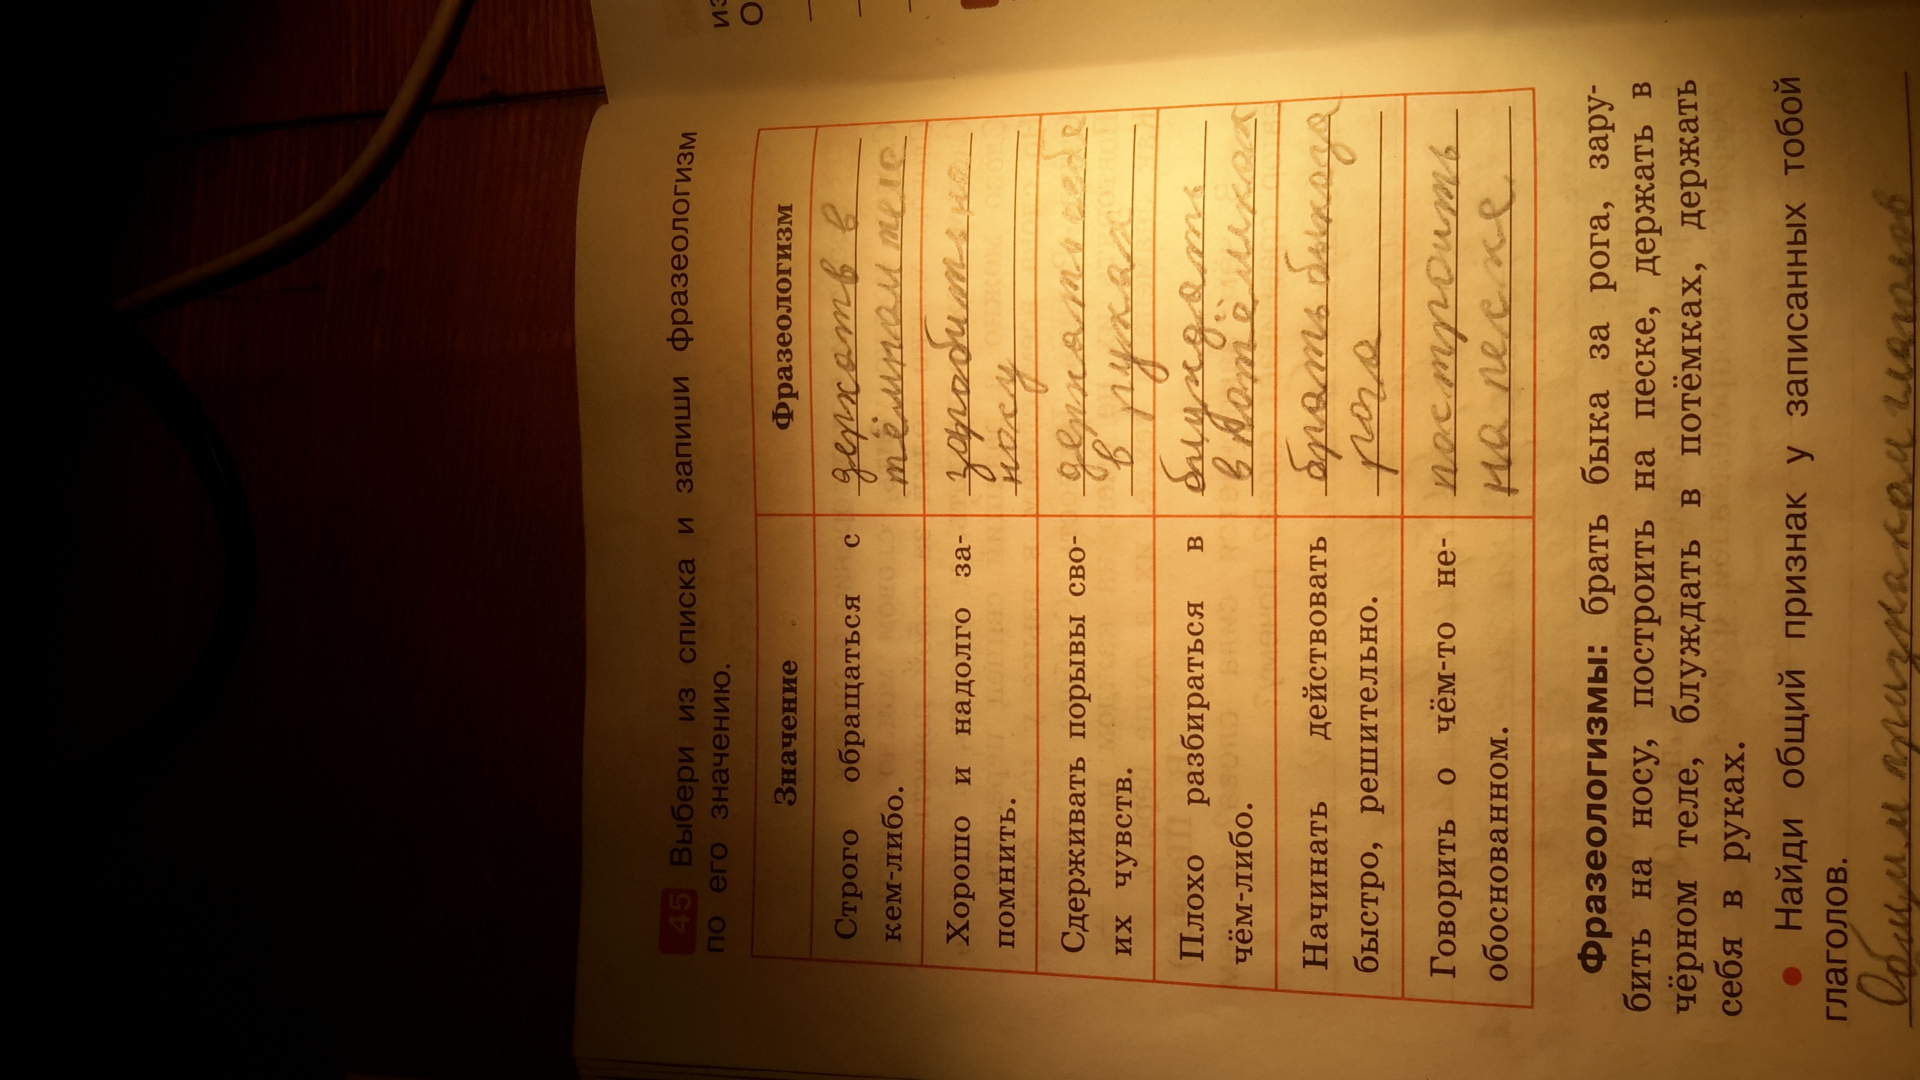 45 Выбери из списка и запиши фразеологизм
по его значению.
Значение
Фразеологизм
Строго обращаться с
кем-либо.
держатв в
тёмном теле
Хорошо и надолго за-
помнить.
заробить на
носу
Сдерживать порывы сво-
их чувств.
держать себя
в руках
Плохо разбираться в
чём-либо.
блуждать
в потёмках
Начинать действовать
быстро, решительно.
брать быка за
рога
Говорить о чём-то не-
обоснованном.
построить
на песке
Фразеологизмы: брать быка за рога, зару-
бить на носу, построить на песке, держать в
чёрном теле, блуждать в потёмках, держать
себя в руках.
• Найди общий признак у записанных тобой
глаголов.
Общим признаком глаголов
из
О